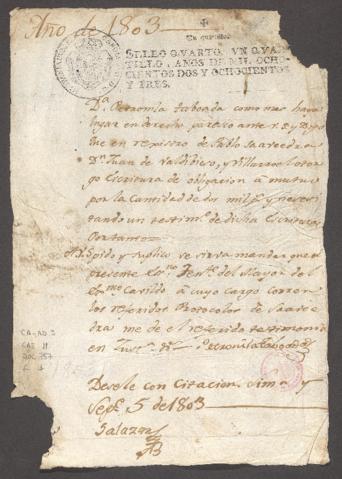 Año de 1803
Un quartillo
SELLO QVARTO, VN QVAR-
TILLO, AÑOS DE MIL OCHO-
CIENTOS DOS Y OCHOCIENTOS
Y TRES.
Dª Petronila Taboada como mas haya
lugar en derecho paresco ante V. y Digo
Que en registro de Pablo Saavedra
Dn Juan de Valdivieso, y Villarroel otor
go Escritura de obligacion a mutuo
por la Cantidad de dos mil ps y neces
tando un testimo de dicha Escritura
Portanto
A V. pido y suplico se sirva mandar que el
presente Esno Tente del Mayor del
Exmo Cavildo à cuyo cargo corren
los referidos Protocolos de Saave
dra me dè el referido testimonio
en Justa Petronila Taboada
Desele con Citacion Lima y
Sepe 5 de 1803
Salazar
CA-AD.3
CAJ 11
DOC 357